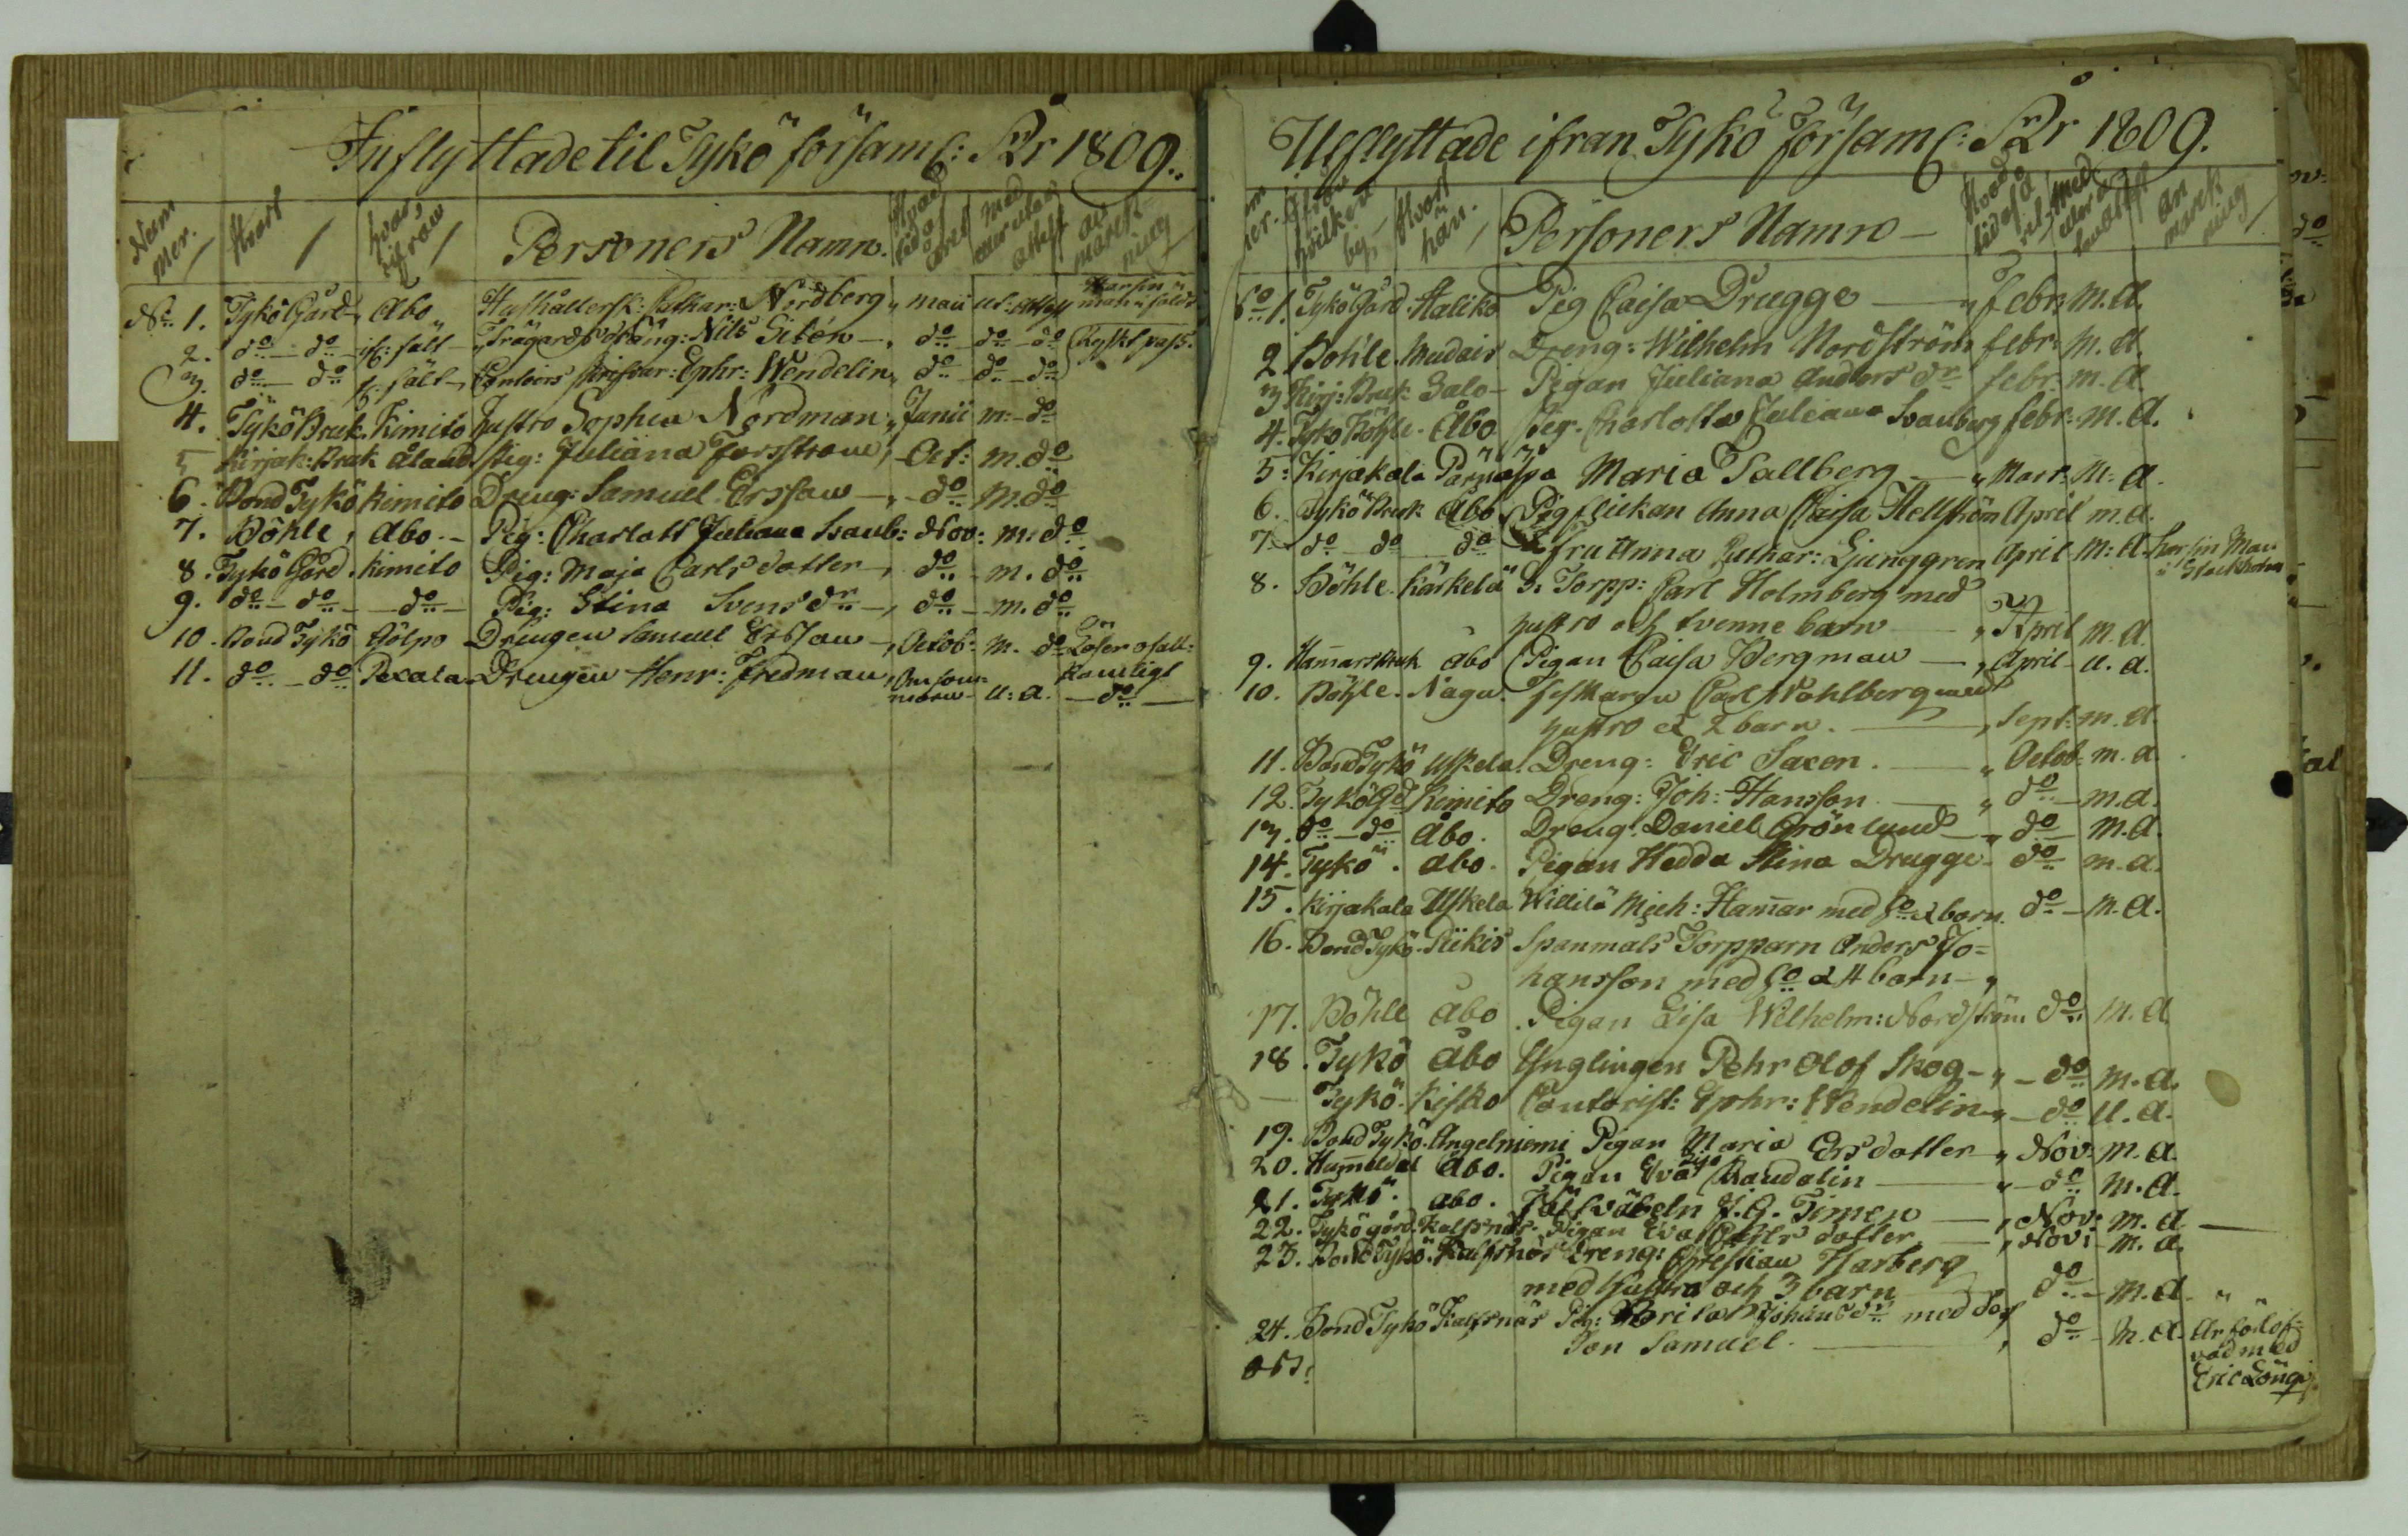 Inflyttade til Tykö församl: År 1809.
Num mer. Hvart hvar ifrån Personers Namn. Hvad tid af året med eller utan attest an märk ning
No. 1. Tykö Gård, Abo, Hushållersk: Cathar: Nordberg, maii ut: attest Har sin man i fält
2. do - do - i fält - Trägårds dräng: Nils Sitén -, do - do - do Ryskt pass.
3. do - do f: fält -, Contoirs skrifvar: Ephr: Wendelin, do - do - do
4. Tykö Bruk. Kimito hustro Sophia Nordman, Junii m: - do
5 Kirjak: Bruk Åland Pig: Juliana Forsstrom, Oct: m. do
6. Bond Tykö Kimito Dreng: Samuel Ersson -, - do m. do
7. Böhle, Abo. - Pig: Charlott Juliana Svanb: Nov: m: do
8. Tykö Gård. Kimito Pig: Maja Carlsdotter -, do - m. do
9. do - do - - do - Pig: Stina Svens dr -, do - m. do
10. Bond Tykö Gölpo Drengen Samuel Ersson -, Octob: m. do Läser ofull:
Komligt
11. do - do Pexala. Drengen Henr: Fredman, Om som:
moren - u: a. - do -
Utflyttade ifran Tykö Församl: År 1809.
Ifrån hvilken by - Hvart hän. Personers Namn - Hvad tid på Med eller utan attest An märk ning
No 1. Tykö Gård. Haliko Pig Caisa Drugge - , febr: m. a.
2 Bohle. Mudais Dreng: Wilhelm Nordström febr: m. a.
3 Kirj: Bruk. Salo - Pigan Juliana Anders dr febr. m. a.
4. Tyko Böhle. Åbo Pig. Charlotta Juliana Svanberg febr: m. a.
5: Kirjakala Parnäspä Maria Tallberg - , Mart: m: a.
6. Tykö Bruk Åbo. Pigflickan Anna Caisa Hellström April m. a.
7. do - do do fru Anna Cathar: Ljunggren April m: a. har sin Man
i Stockholm
8. Böhle. Kärkelä S: Torpp: Carl Holmberg med
hustro och tvenne barn - , April m. a.
9. Hamarsbruk Åbo Pigan Caisa Bergman - , April - u. a.
10. Böhle. Nagu. Carl Wahlberg med
hustro & 2 barn. - , Sept: m. a.
11. Bond Tykö Uskela. Dreng: Eric Saxen. - , Octob: m. a.
12. Tykö Gd Kimito Dreng: Joh: Hansson - , do - m. a.
13. do - do Åbo. Dreng: Daniel Grönlund - , do m. a.
14. Tykö. Åbo. Pigan Hedda Stina Drugge - do m. a.
15. Kirjakala Uskela Mich: Hamar med ho & barn. do - m. a.
16. Bond Tykö. Stikis Spanmåls Torpparn Anders Jo=
hansson med ho & 4 barn - ,
17. Böhle Åbo. Pigan Lisa Wilhelm: Nordström do m. a.
18. Tykö Åbo Ynglingen Pehr Olof Skog - , - do m. a.
- Tykö. Kisko Contorist: Ephr: Wendelin, - do u. a.
19. Bond Tykö. Angelniemi Pigan Maria Ersdotter, Nov: m. a.
20. Hamaldal Åbo. Pigan Eva Randalin - , do m. a.
21. Tykö. Åbo. Fältväbeln J. G. Timen - , Nov: m. a -
22. Tykö gård. Kalfsnäs. Pigan Eva Pehrs dotter - , Nov: m. a.
23. Bond Tykö. Kalfsnäs Dreng: Christian Harberg
med hustro och 3 barn do - m. a. "
24. Bond Tykö Kalfsnäs Pig: Brita Johans dr med des
Son Samuel. - , do - m. a. är förlof=
vad med
Eric Löngv